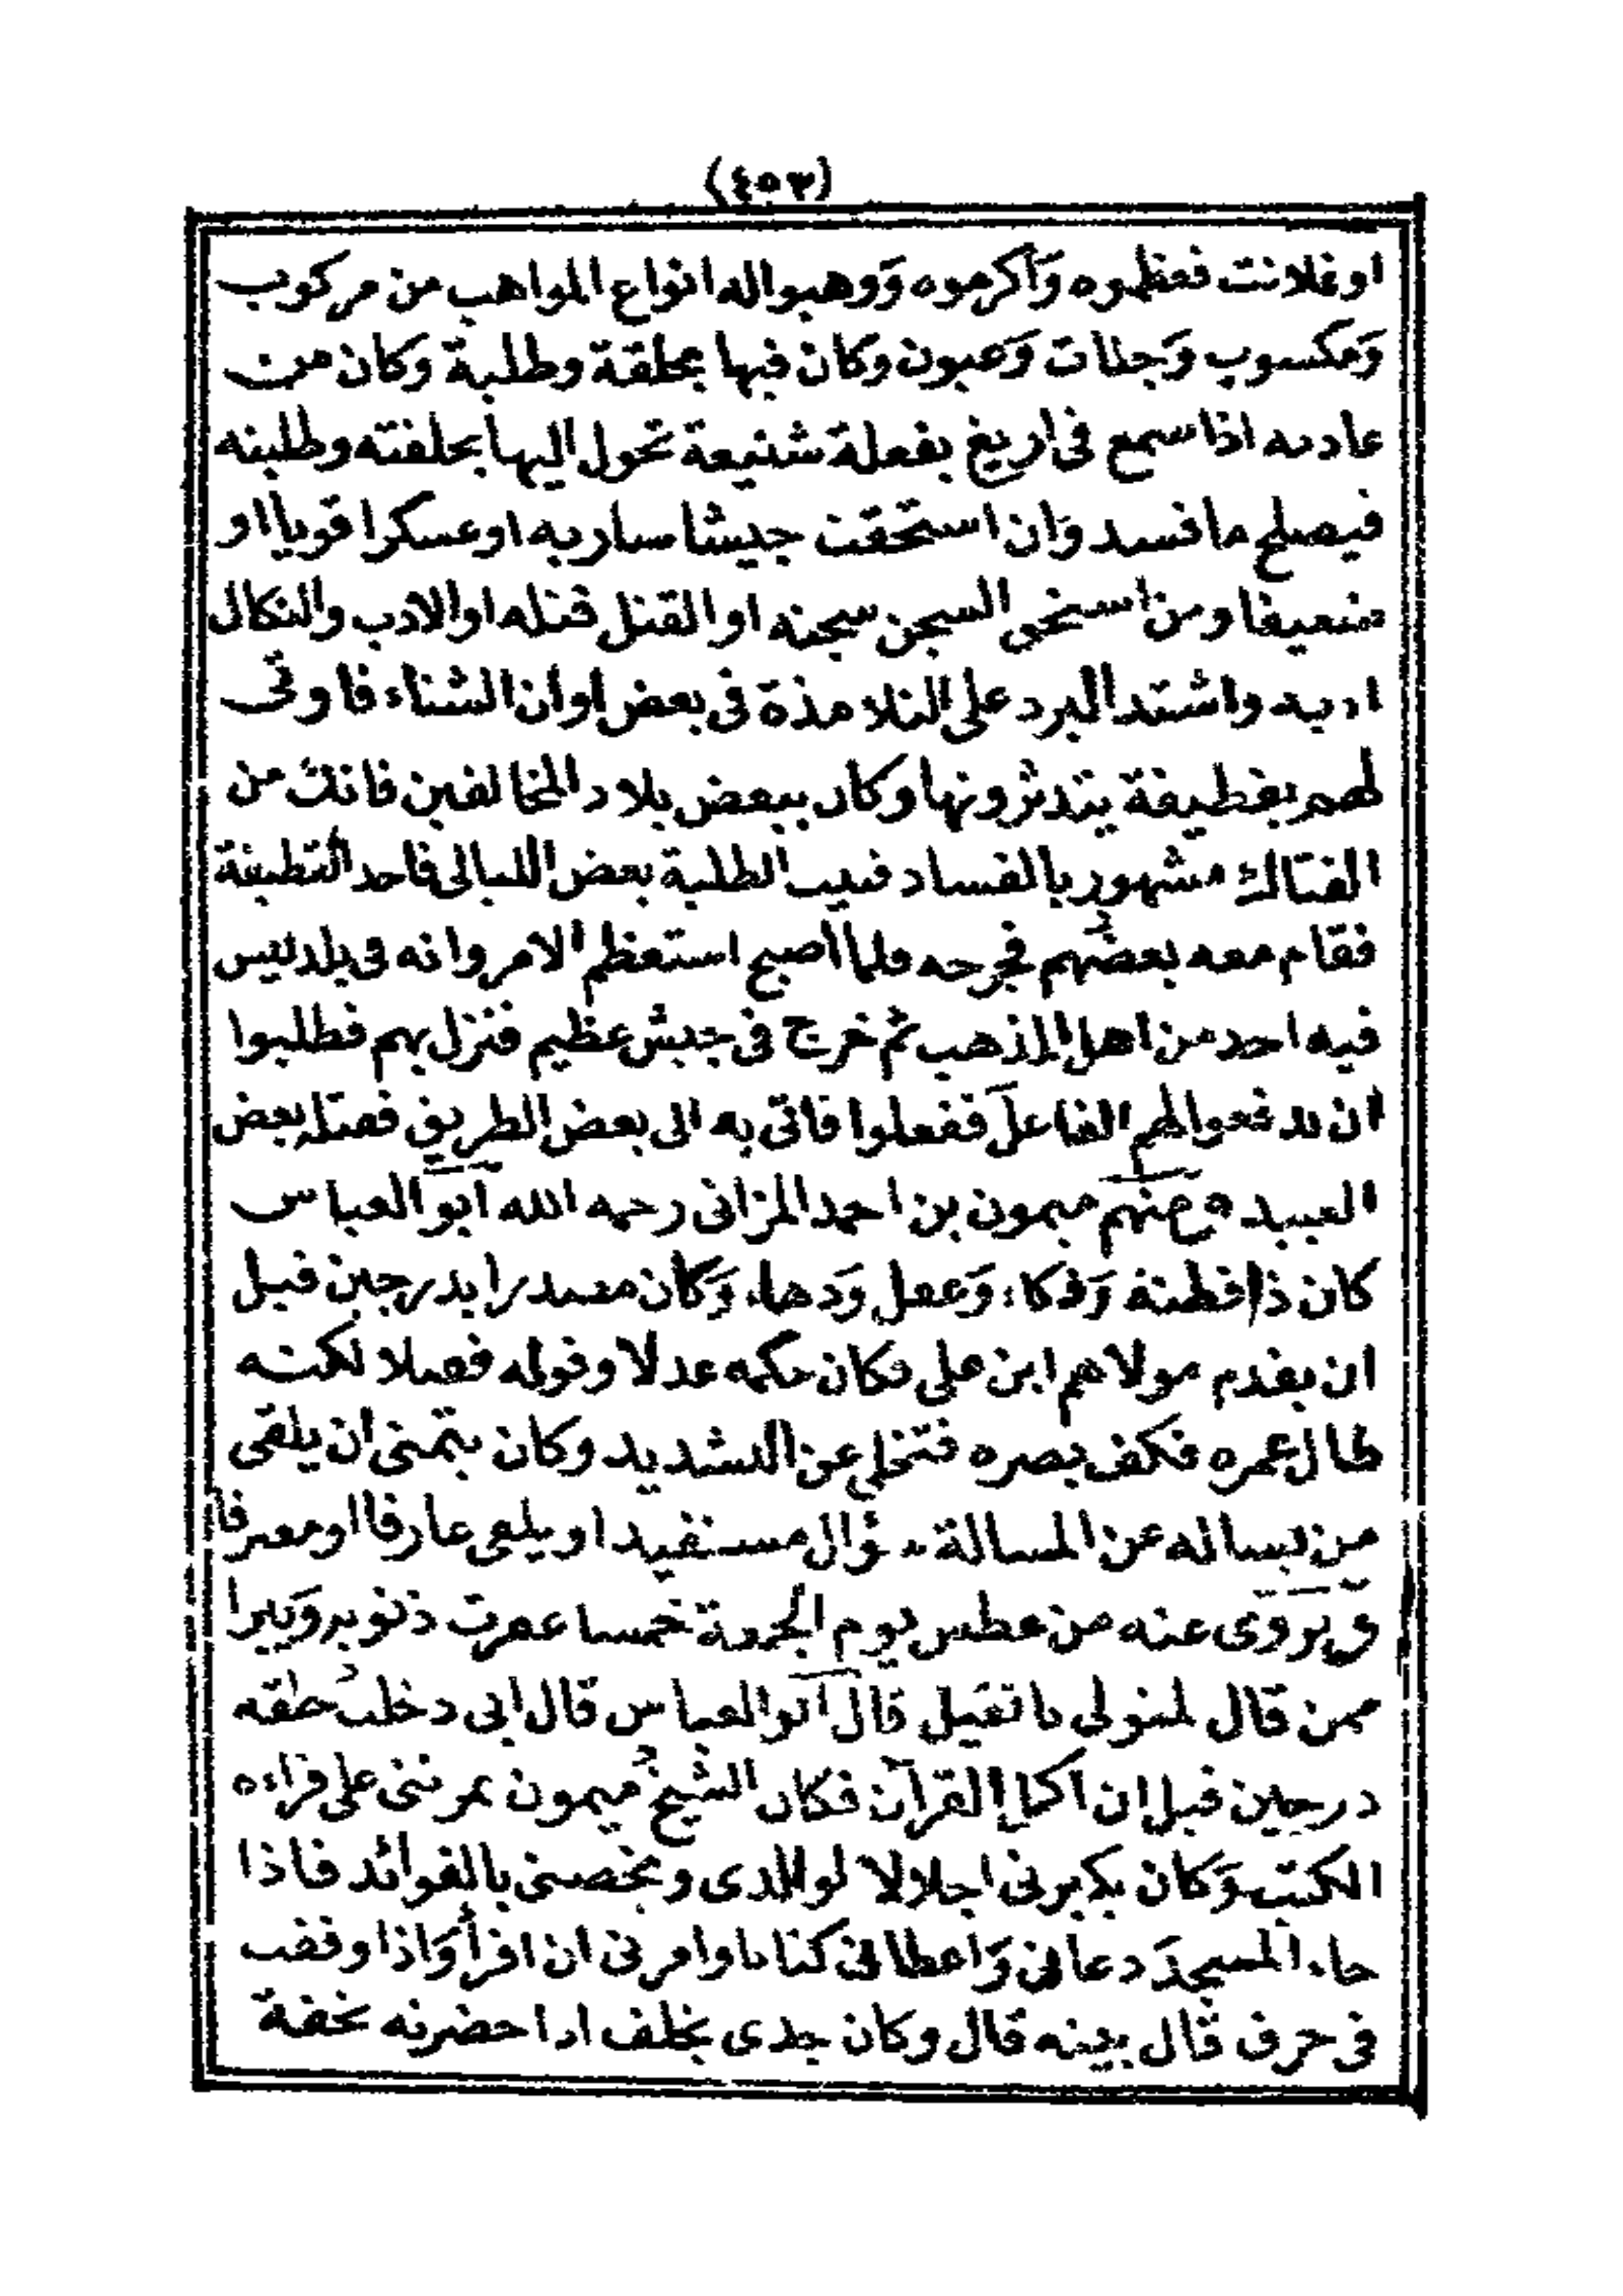 (٤٥٣)
اوغلانت فعظموه وَاكرموه وَوهبوا له انواع المواهب من مركوب
وَمكسوب وَجنات وَعيون وكان فيها بحلقة وطلبة وكان من
عادته اذا سمع فى اريغ بفعلة شنيعة تحول اليها بحلقته وطلبته
فيصلح ما فسد وَان استحقت جيشا سار به اوعسكرا قويا او
ضعيفا ومن استحق السجن سجنه او القتل قتله او الادب والنكال
ادبه واشتد البرد على التلامذة فى بعض اوان الشتاء فاوتى
لهم بقطيفة يتدثرونها وكان ببعض بلاد المخالفين فاتك من
الفتاك مشهور بالفساد فبيت الطلبة بعض الليالى فاخذ القطيفة
فقام معه بعضهم فجرحه فلما اصبح استعظم الامر وانه فى بلد ليس
فيه احد من اهل المذهب ثم خرج فى جيش عظيم فنزل بهم فطلبوا
ان يدفعوا لهم الفاعل ففعلوا فاتى به الى بعض الطريق فقتله بعض
العبيد ومنهم ميمون بن احمد المزاتى رحمه الله ابو العباس
كان ذا فطنة وَذكاء وَعقل وَدهاء وَكان مصدرا بدرجين قبل
ان يقدم مولاهم ابن على فكان حكمه عدلا وقوله فصلا لكنه
طال عمره فكف بصره فتخلى عن التشديد وكان يتمنى ان يلقى
من يساله عن المسالة سؤال مستفيد او يلقى عارفا او معرفا
وَيروَى عنه من عطس يوم الجمعة خمسا غفرت ذنوبه وَيبرا
ممن قال لمتولى ما تقيل قال ابو العباس قال ابى دخلت حلقة
درجين قبل ان اكمل القرآن فكان الشيخ ميمون يمرننى على قراءة
الكتب وَكان يكبرنى اجلالا لوالدى ويخصنى بالفوائد فاذا
جاء المسجد دعانى وَاعطانى كتابا وامرنى ان اقرأ وَاذا وقفت
فى حرف قال بينه قال وكان جدى يخلف اذا حضرته